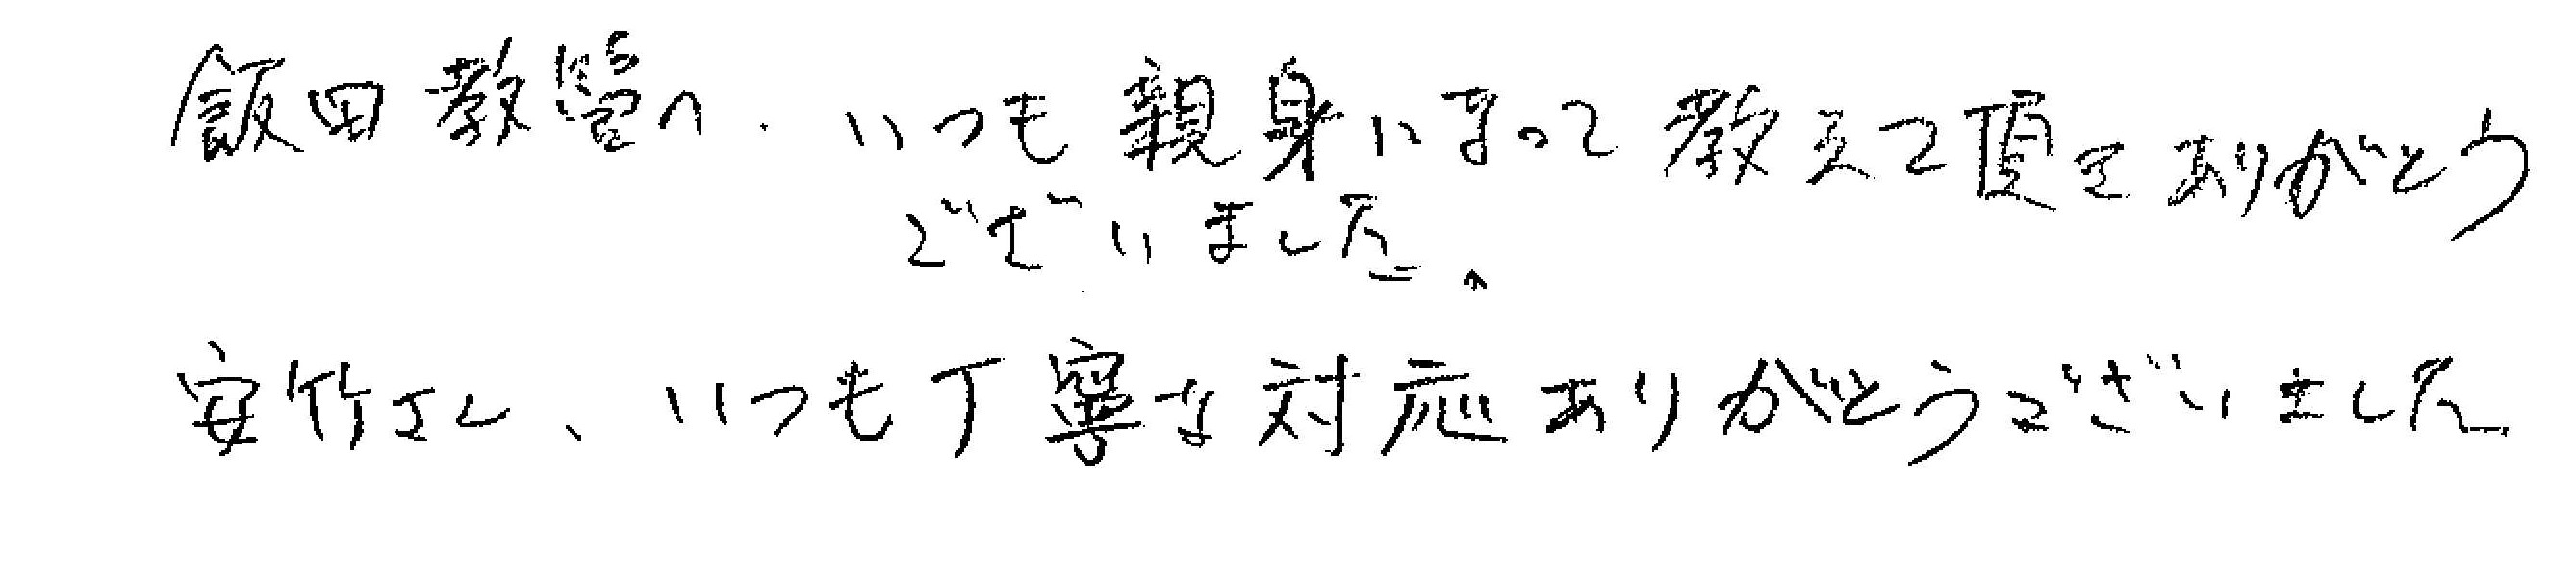 飯田教習へ. いつも親身になって教えて頂きありがとう
ございました。
安竹さん、いつも丁寧な対応ありがとうございました